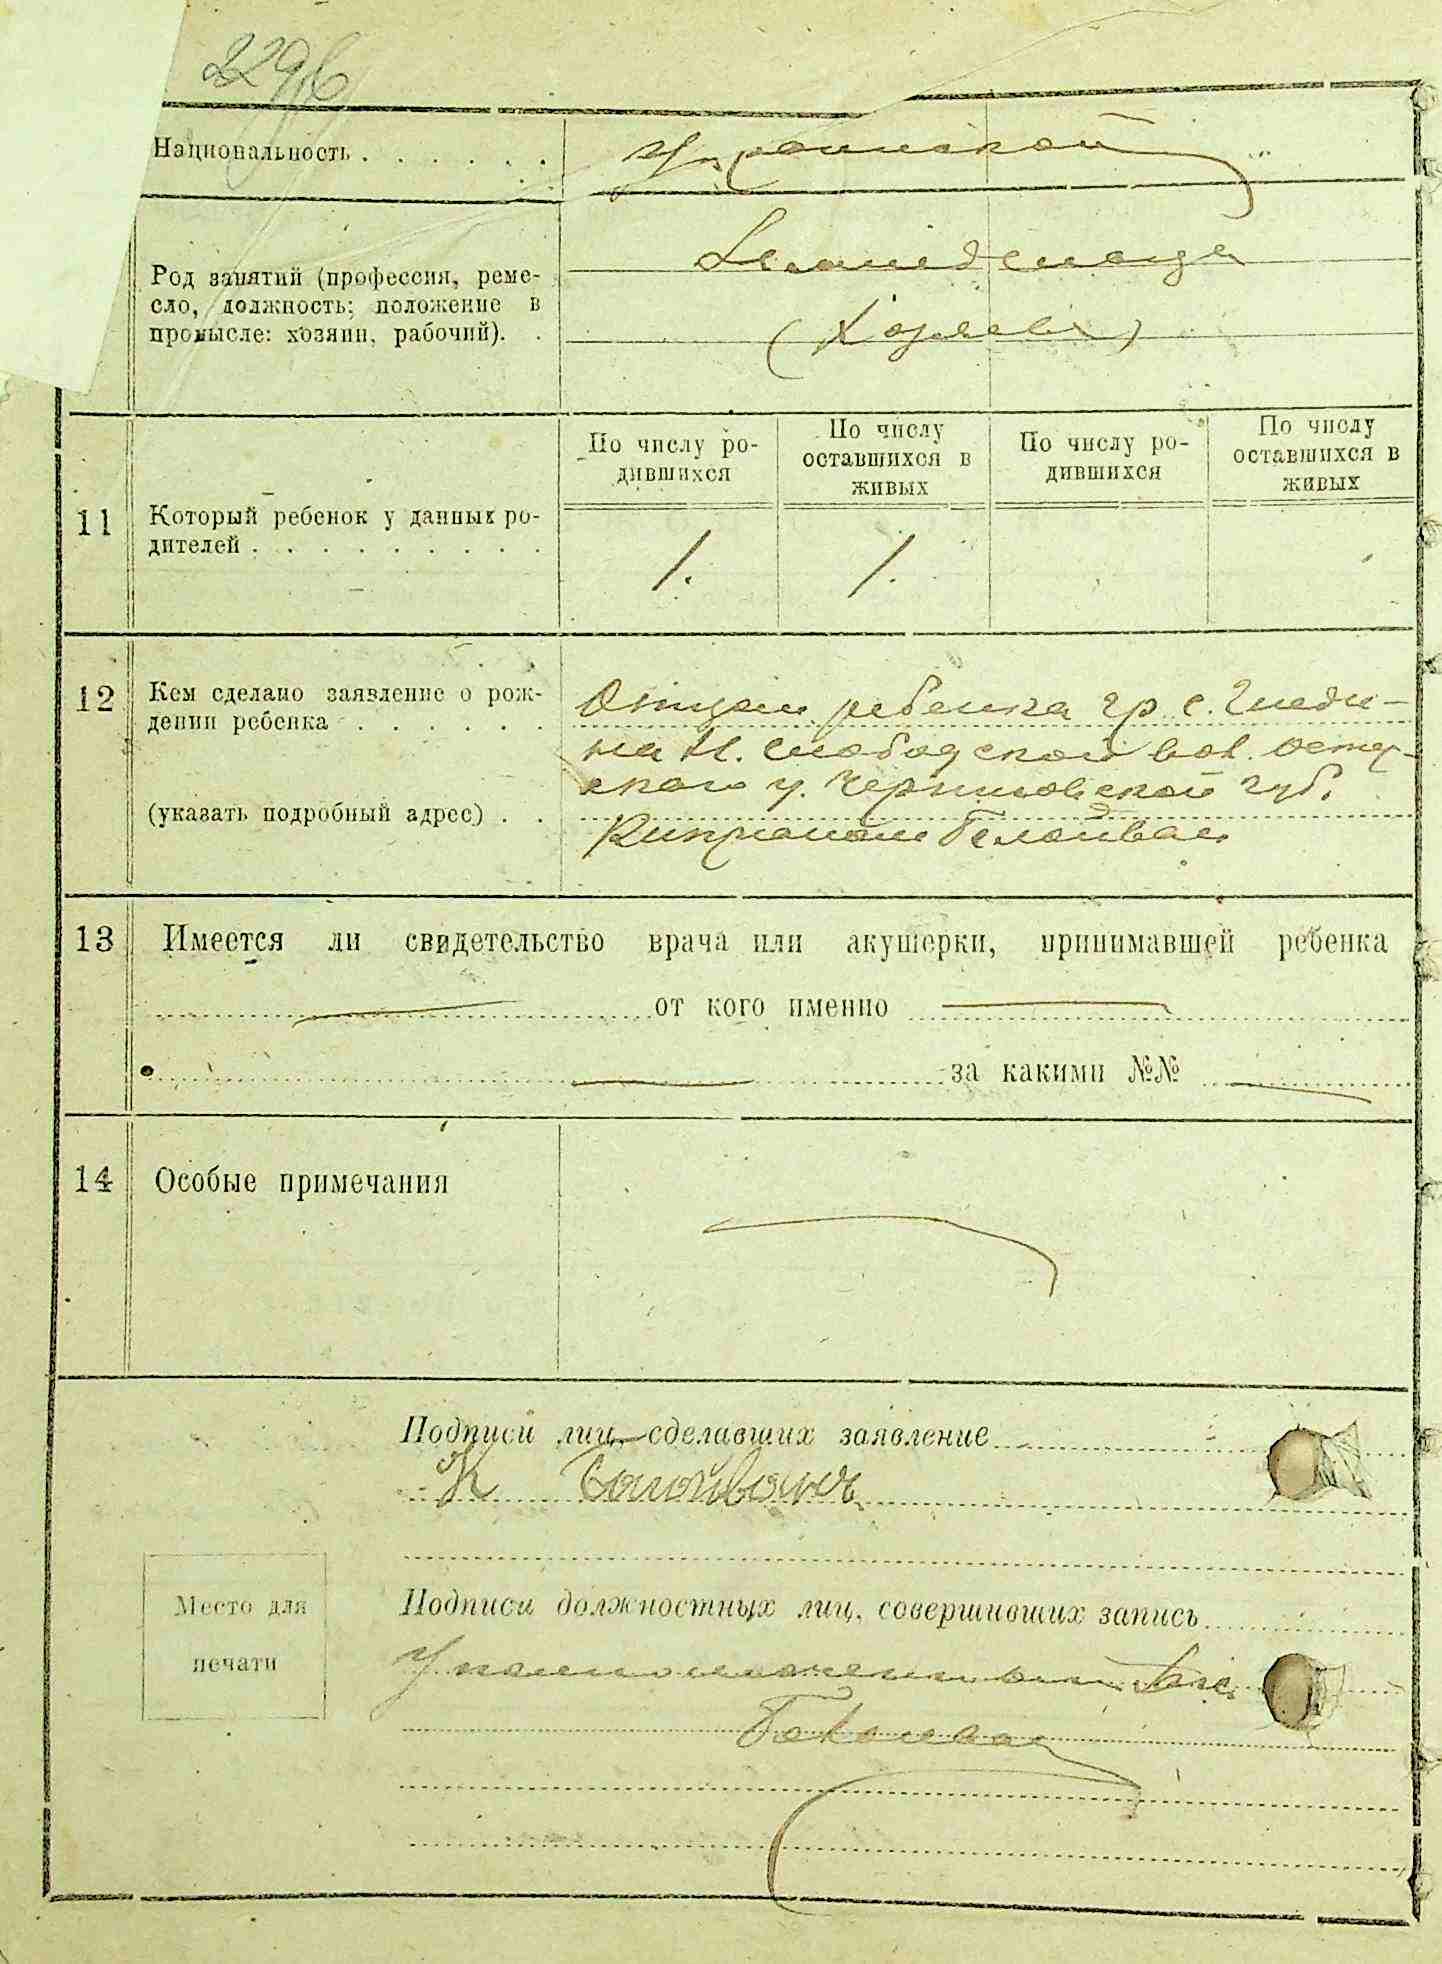 229б
Национальность . . . . . . Украинской
Земледельцы
Род занятий (профессия, реме-
сло, должность; положение в
промысле: хозяин, рабочий). . (Хозяева)
По числу ро-
дившихся
По числу
оставшихся в
живых
По числу ро-
дившихся
По числу
оставшихся в
живых
11 Который ребенок у данных ро-
дителей . . . . . . . . . 1. 1.
12 Кем сделано заявление о рож-
дении ребенка . . . . . .
(указать подробный адрес) . .
Отцом ребенка гр. с. Гнеди-
на Н. Слободской вол. Остер-
ского у. Черниговской губ.
Киприаном Белойван
13 Имеется ли свидетельство врача или акушерки, принимавшей ребенка
от кого именно
за какими №№
14 Особые примечания
Подписи лиц, сделавших заявление
К Билойванъ
Место для
печати
Подписи должностных лиц, совершивших запись
Уполномоченный